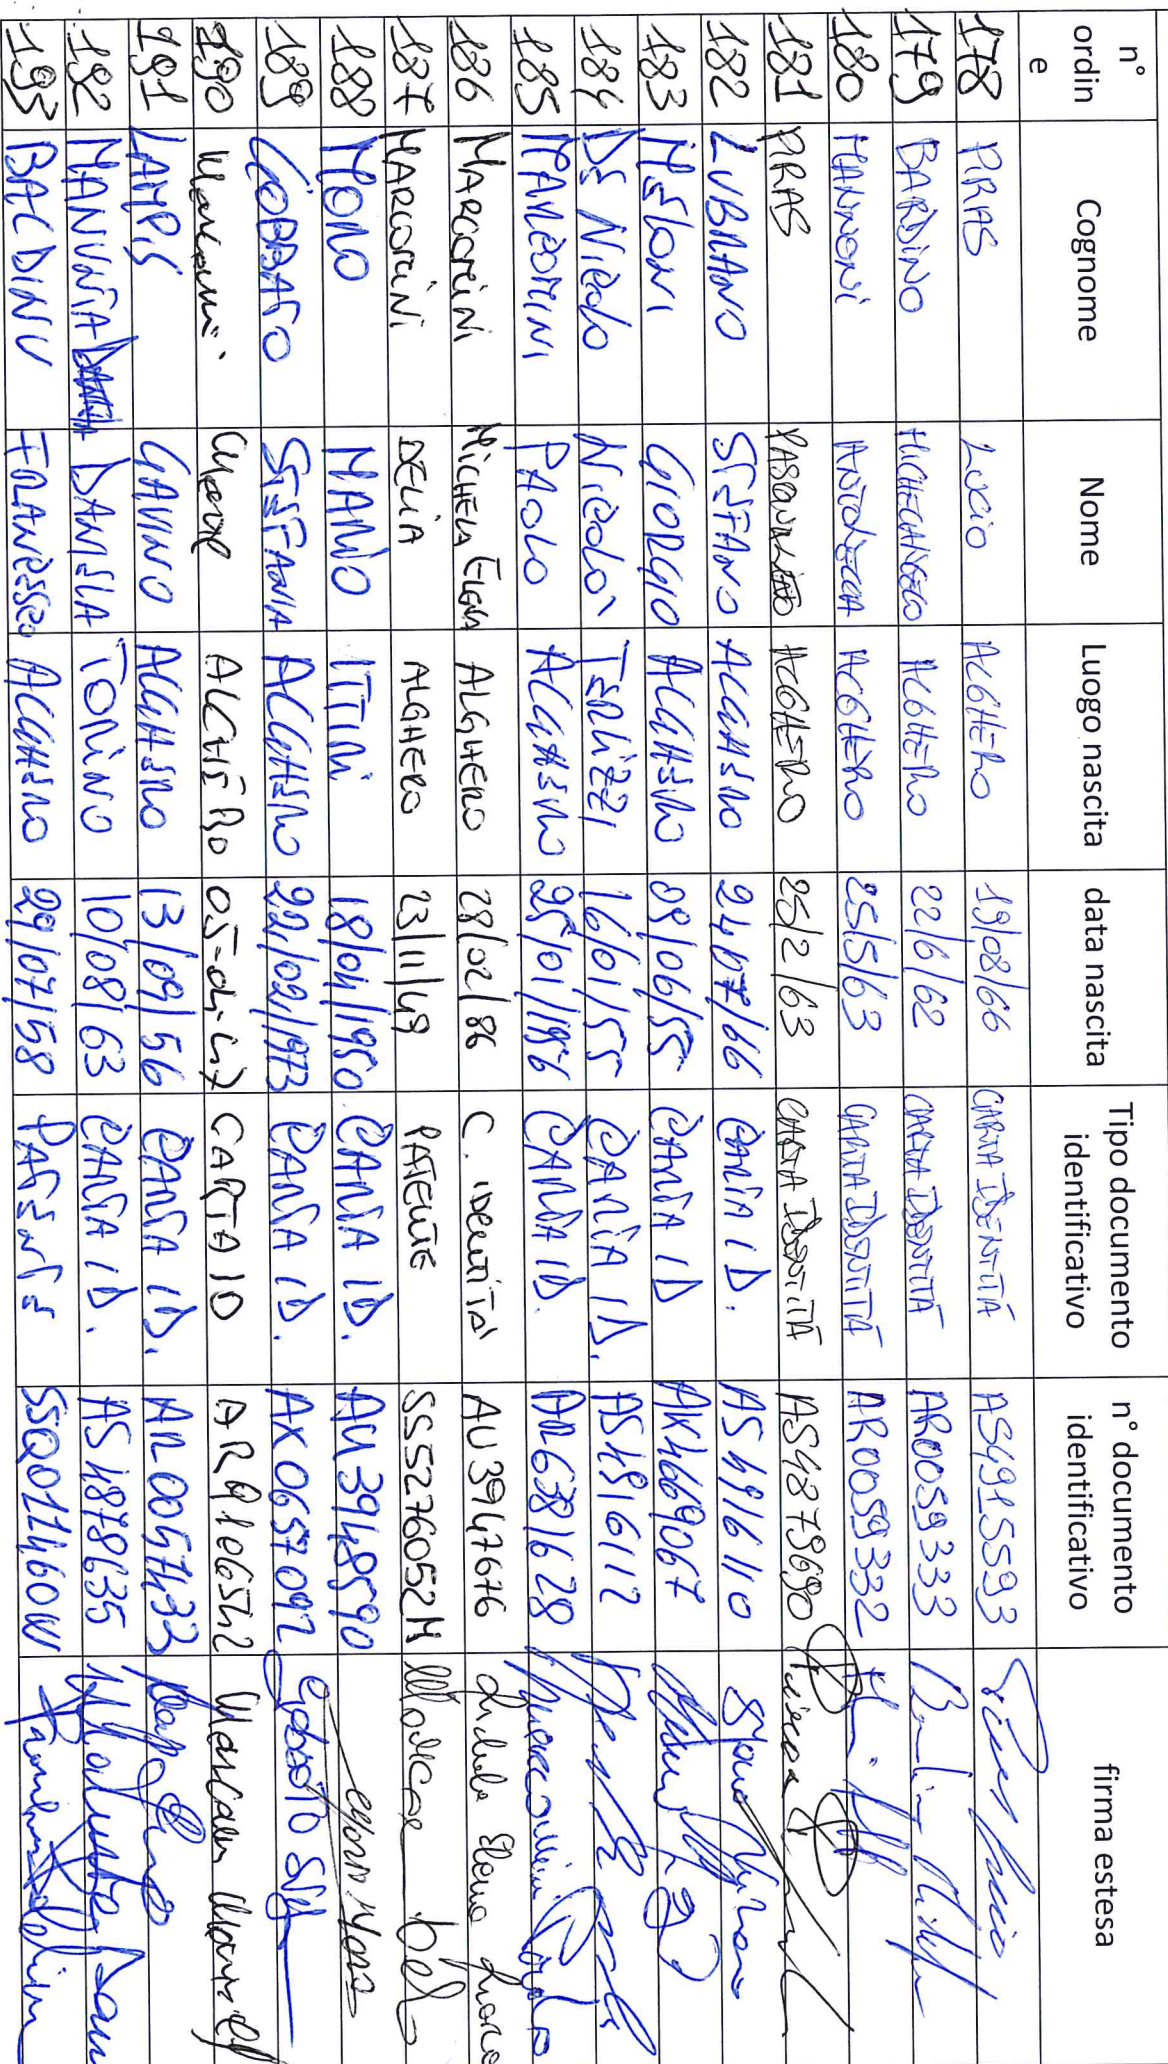 n° ordine Cognome Nome Luogo nascita data nascita Tipo documento identificativo n° documento identificativo firma estesa
178 PIRAS LUCIO ALGHERO 19/08/66 CARTA IDENTITÀ AS4915593
179 BARDINO MICHELANGELO ALGHERO 22/6/62 CARTA IDENTITÀ AR0059333
180 MANNONI ANTONELLA ALGHERO 25/5/63 CARTA IDENTITÀ AR0059332
181 PIRAS PASQUALINO ALGHERO 25/2/63 CARTA IDENTITÀ AS4879690
182 LUBRANO STEFANO ALGHERO 24/07/66 CARTA ID. AS4916110
183 MELONI GIORGIO ALGHERO 09/06/55 CARTA ID AK4669067
184 DE NICOLO NICOLÒ TERLIZZI 16/01/55 CARTA ID. AS4916112
185 MARCOMINI PAOLO ALGHERO 25/01/1956 CARTA ID. AR6381628
186 MARCOMINI MICHELA ELENA ALGHERO 28/02/86 C. IDENTITÀ AU3947676
187 DELIA ALGHERO 23/11/49 PATENTE SS5276052M
188 MORO MARIO ITTIRI 18/04/1950 CARTA ID. AU3948590
189 GOBBATO STEFANIA ALGHERO 22/02/1973 CARTA ID. AX0657092
190 ALGHERO CARTA ID AR9106542
191 LAMPIS GAVINO ALGHERO 13/09/56 CARTA ID. AR0057433
192 MANUNTA DANIELA TORINO 10/08/63 CARTA ID. AS4878635
193 BACDINU FRANCESCO ALGHERO 29/07/58 PATENTE SSQ011460W